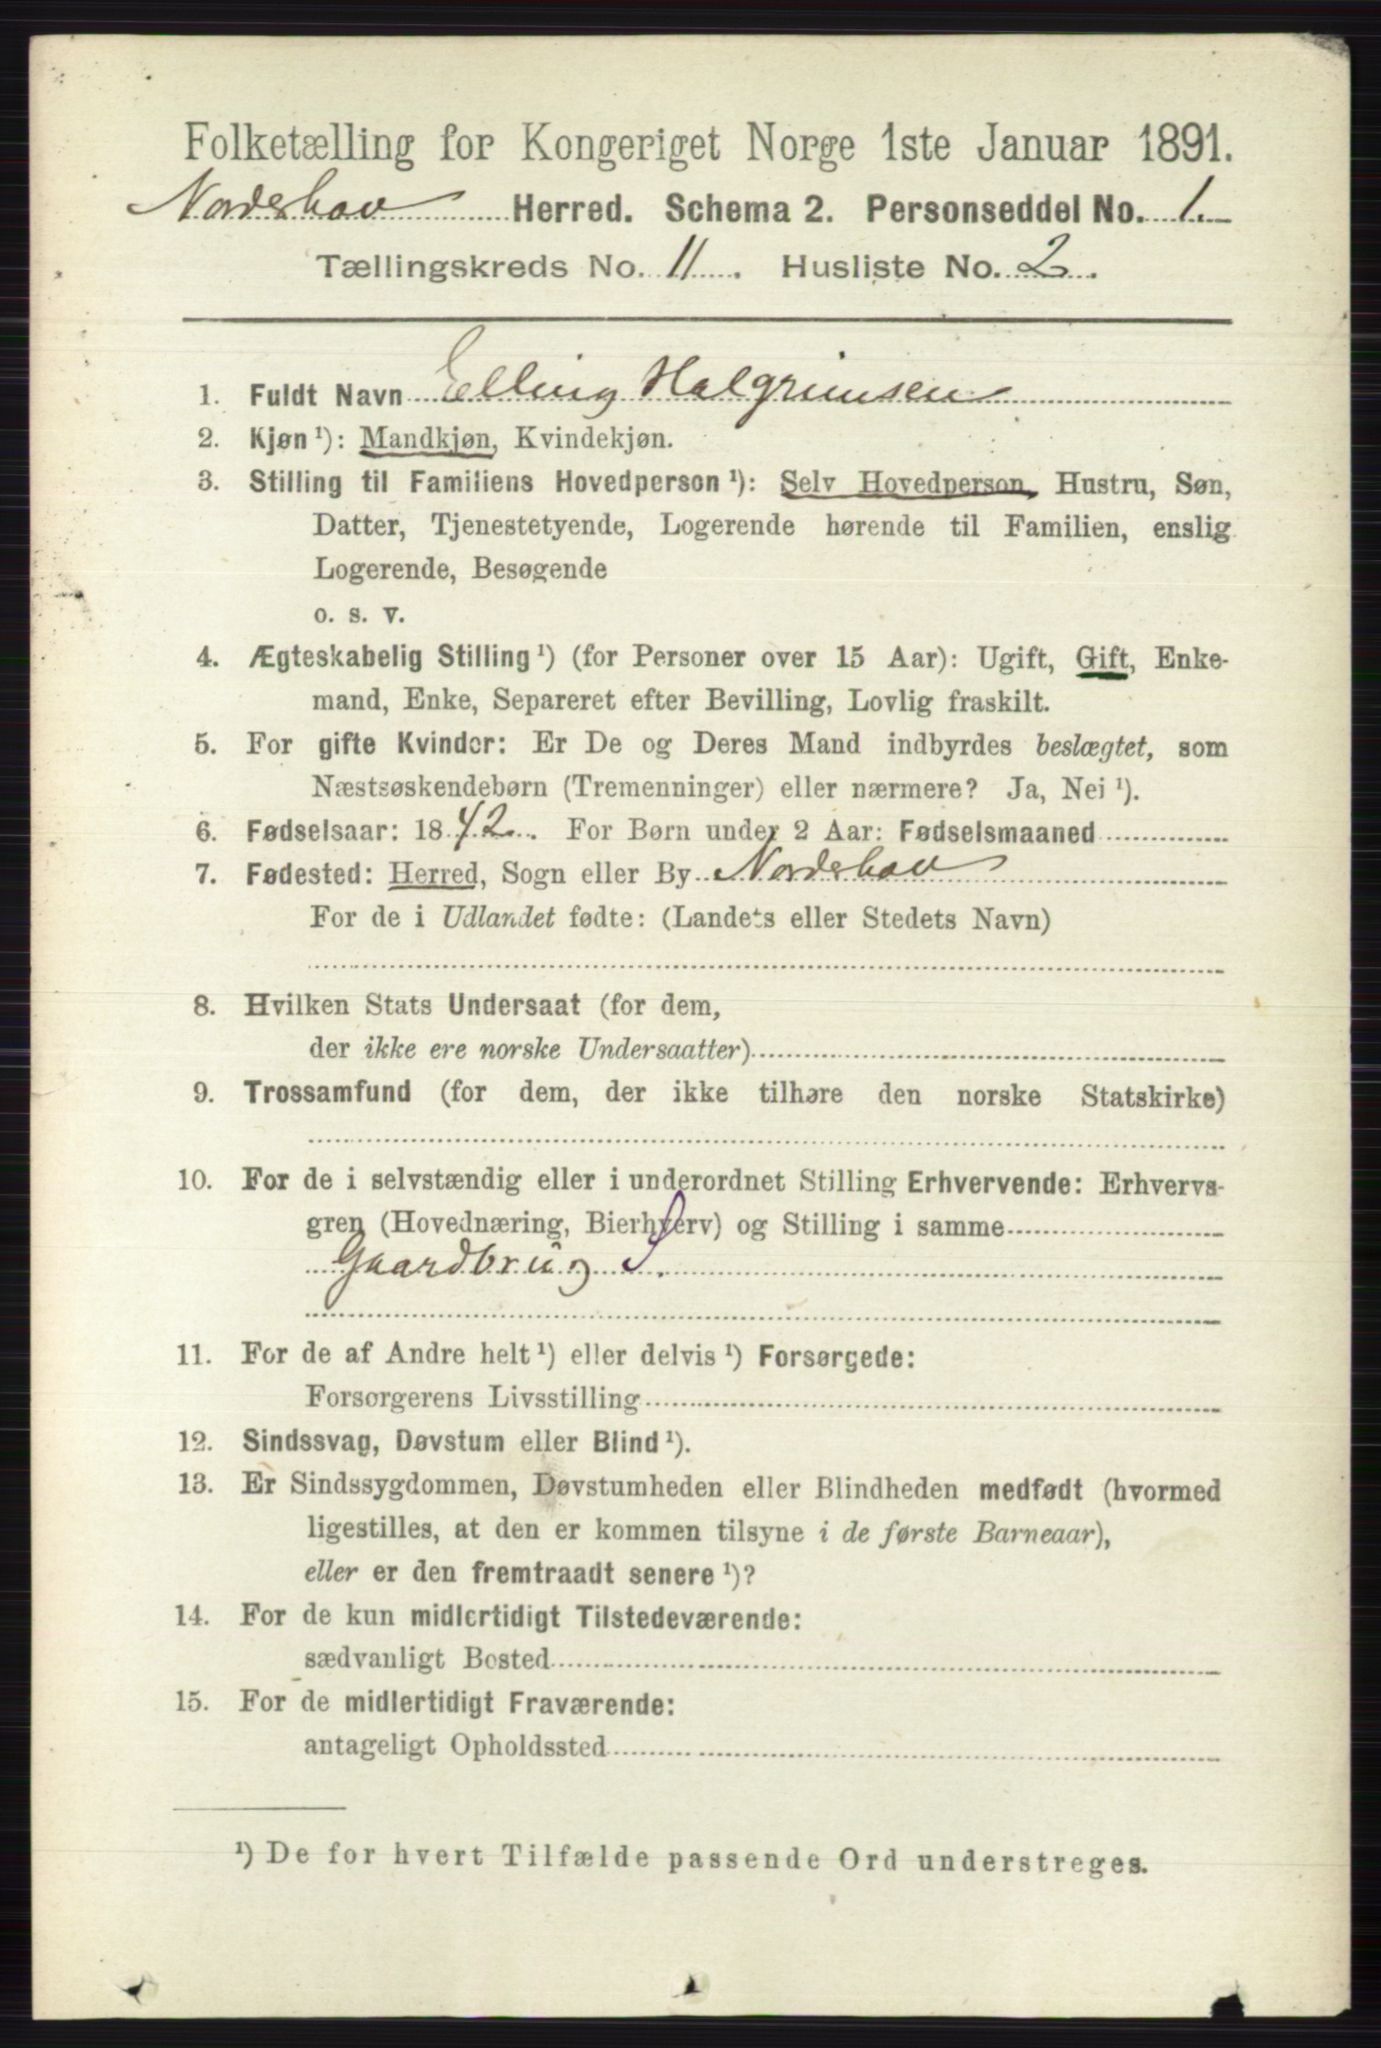 Folketælling for Kongeriget Norge 1ste Januar 1891.
Norderhov Herred. Schema 2. Personseddel No. 1.
Tællingskreds No. 11. Husliste No. 2.
1. Fuldt Navn Elling Halgrimsen
2. Kjøn ¹): Mandkjøn, Kvindekjøn.
3. Stilling til Familiens Hovedperson ¹): Selv Hovedperson, Hustru, Søn,
Datter, Tjenestetyende, Logerende hørende til Familien, enslig
Logerende, Besøgende
o. s. v.
4. Ægteskabelig Stilling ¹) (for Personer over 15 Aar): Ugift, Gift, Enke-
mand, Enke, Separeret efter Bevilling, Lovlig fraskilt.
5. For gifte Kvinder: Er De og Deres Mand indbyrdes beslægtet, som
Næstsøskendebørn (Tremenninger) eller nærmere? Ja, Nei ¹).
6. Fødselsaar: 1842. For Børn under 2 Aar: Fødselsmaaned
7. Fødested: Herred, Sogn eller By Norderhov
For de i Udlandet fødte: (Landets eller Stedets Navn)
8. Hvilken Stats Undersaat (for dem,
der ikke ere norske Undersaatter)
9. Trossamfund (for dem, der ikke tilhøre den norske Statskirke)
10. For de i selvstændig eller i underordnet Stilling Erhvervende: Erhvervs-
gren (Hovednæring, Bierhverv) og Stilling i samme
Gaardbrug S.
11. For de af Andre helt ¹) eller delvis ¹) Forsørgede:
Forsørgerens Livsstilling
12. Sindssvag, Døvstum eller Blind ¹).
13. Er Sindssygdommen, Døvstumheden eller Blindheden medfødt (hvormed
ligestilles, at den er kommen tilsyne i de første Barneaar),
eller er den fremtraadt senere ¹)?
14. For de kun midlertidigt Tilstedeværende:
sædvanligt Bosted
15. For de midlertidigt Fraværende:
antageligt Opholdssted
¹) De for hvert Tilfælde passende Ord understreges.